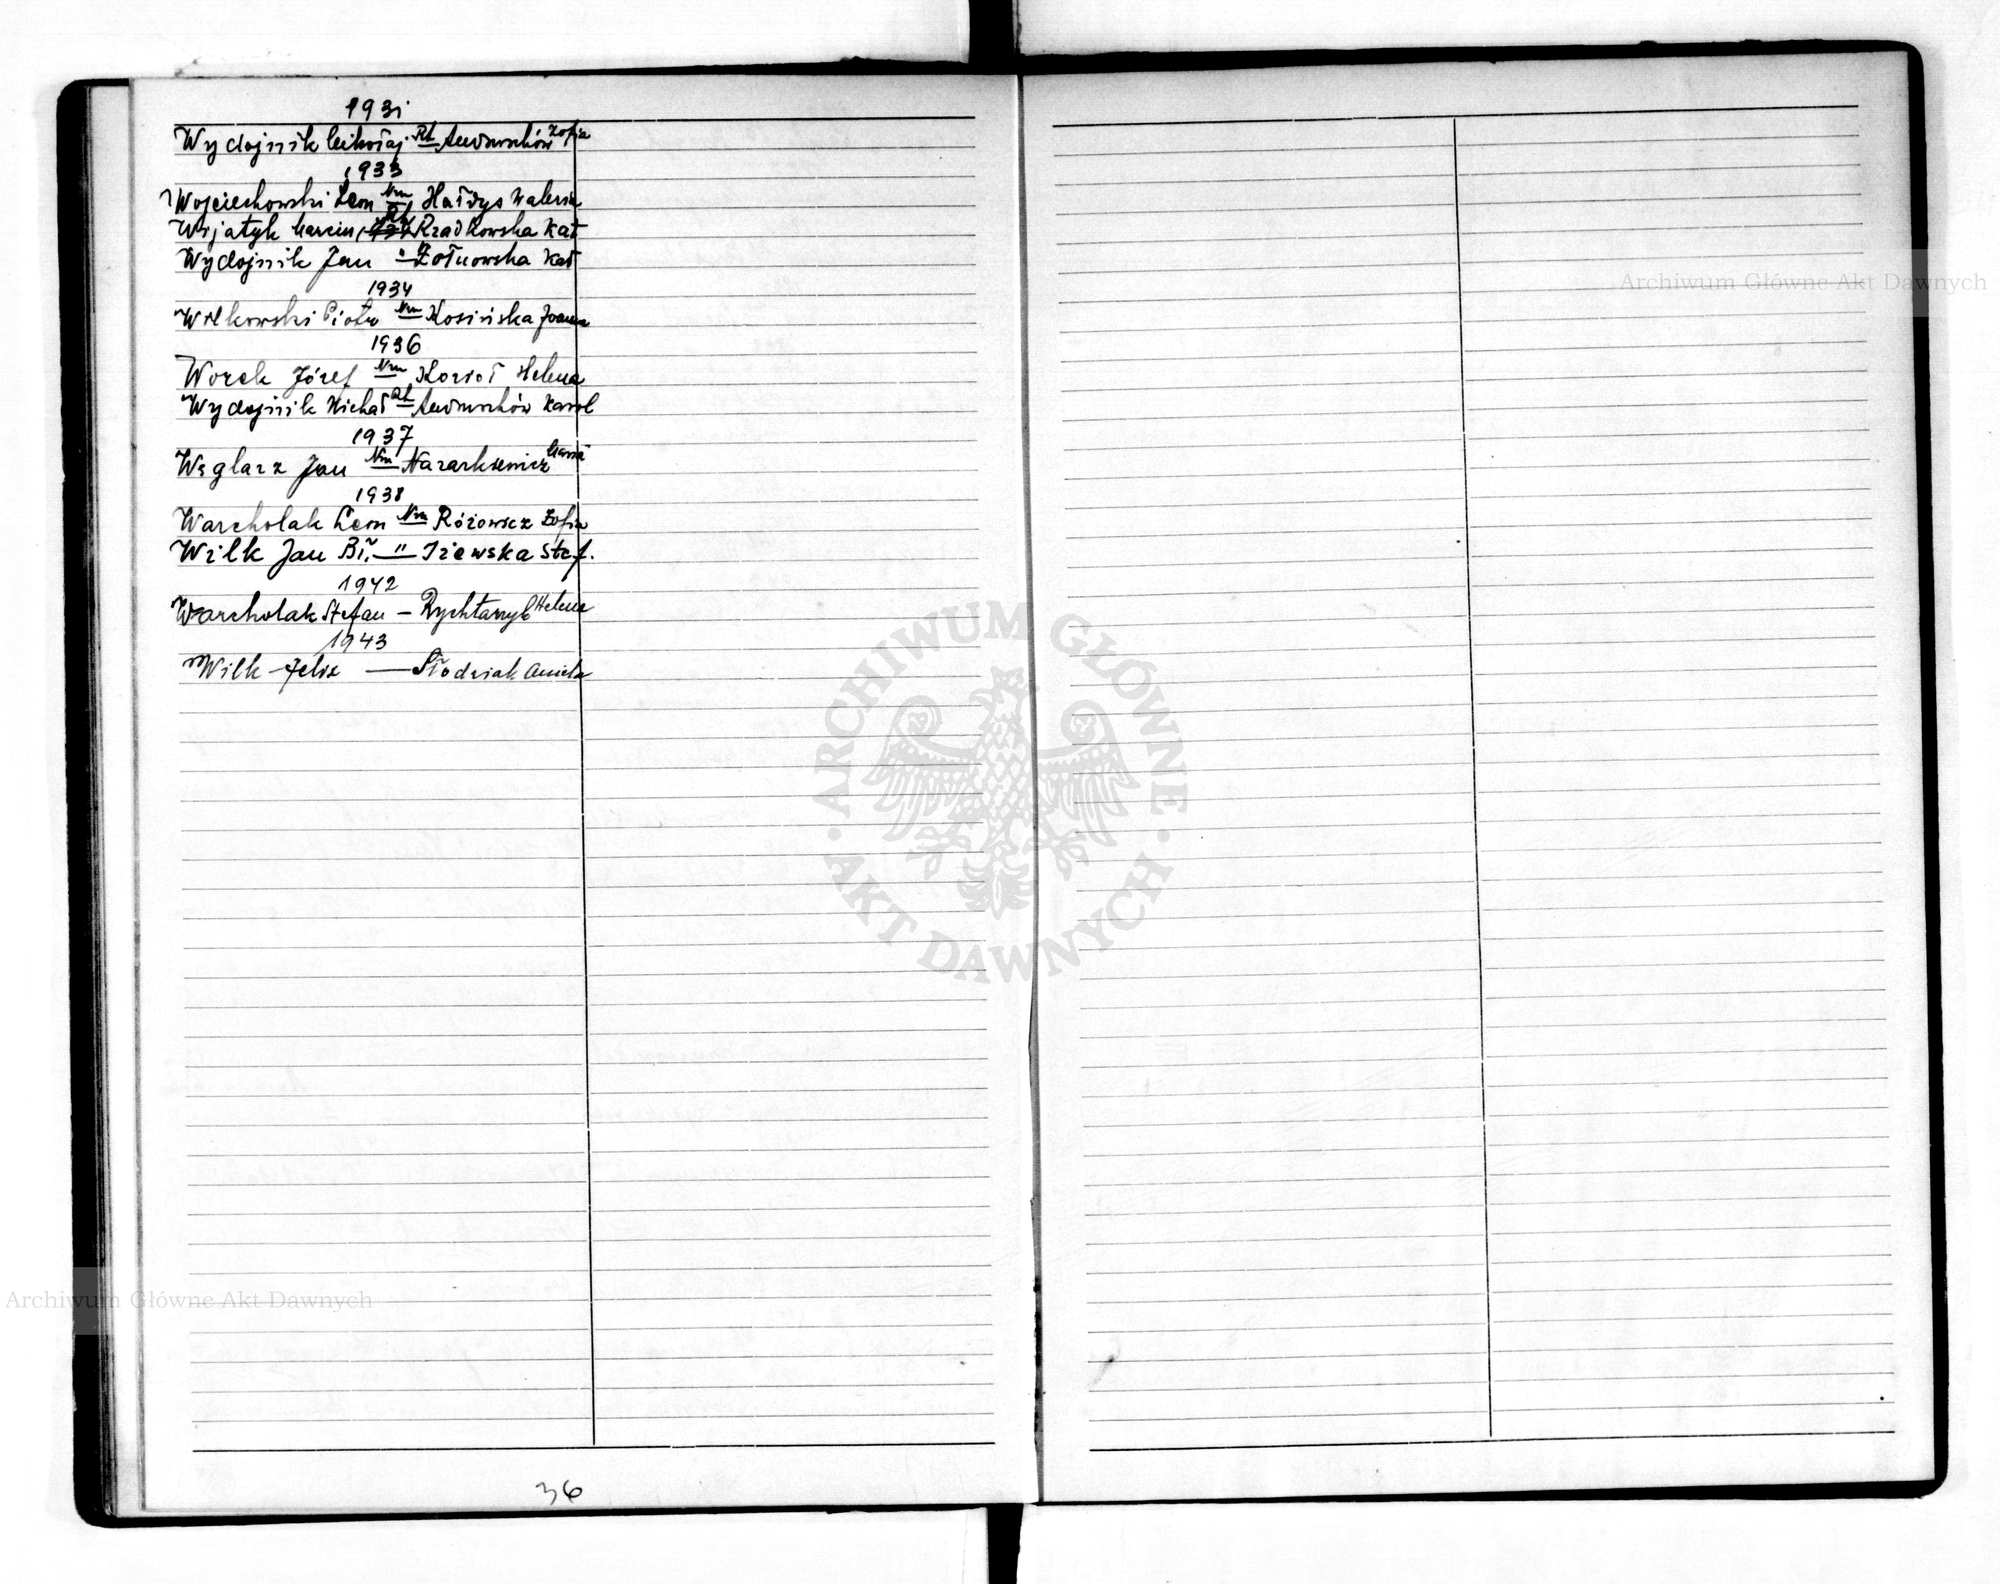 1931
Wydojnik Mikołaj Rh Andruchów Zofia
1933
Wojciechowski Leon Nm Hałdys Waleria
Wijatyk Marcin Rh Rzadkowska Kat
Wydojnik Jan " Żołnowska Kat
1934
Wilkowski Piotr Nm Kosińska Joanna
1936
Worek Józef Nm Kozioł Helena
Wydojnik Michał Rh Andruchów Karol
1937
Węglarz Jan Nm Nazarkiewicz Maria
1938
Warcholak Leon Nm Różowicz Zofia
Wilk Jan Bł. — " Iżewska Stef.
1942
Warcholak Stefan — Rychtarczyk Helena
1943
Wilk Felix — Słodziak Aniela
36
ARCHIWUM GŁÓWNE AKT DAWNYCH
Archiwum Główne Akt Dawnych
Archiwum Główne Akt Dawnych